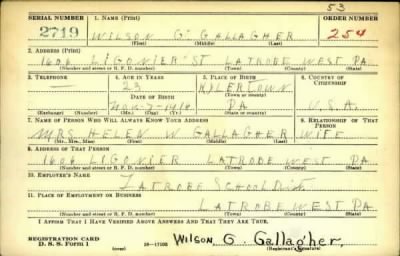 53
SERIAL NUMBER 1. NAME (Print) ORDER NUMBER
2719 WILSON G. GALLAGHER 254
(First) (Middle) (Last)
2. ADDRESS (Print)
1606 LIGONIER ST LATROBE WEST PA.
(Number and street or R. F. D. number) (Town) (County) (State)
3. TELEPHONE 4. AGE IN YEARS 5. PLACE OF BIRTH 6. COUNTRY OF CITIZENSHIP
23
DATE OF BIRTH
(Town or county)
NOV-7-1916 PA U.S.A.
(Exchange) (Number) (Mo.) (Day) (Yr.) (State or country)
7. NAME OF PERSON WHO WILL ALWAYS KNOW YOUR ADDRESS 8. RELATIONSHIP OF THAT PERSON
MRS HELEN W GALLAGHER WIFE
(Mr., Mrs., Miss) (First) (Middle) (Last)
9. ADDRESS OF THAT PERSON
1606 LIGONIER LATROBE WEST PA
(Number and street or R. F. D. number) (Town) (County) (State)
10. EMPLOYER'S NAME
LATROBE SCHOOL Dist.
11. PLACE OF EMPLOYMENT OR BUSINESS
LATROBE WEST PA.
(Number and street or R. F. D. number) (Town) (County) (State)
I AFFIRM THAT I HAVE VERIFIED ABOVE ANSWERS AND THAT THEY ARE TRUE.
REGISTRATION CARD
D. S. S. Form 1 (over) 16-17105 Wilson G. Gallagher.
(Registrant's signature)